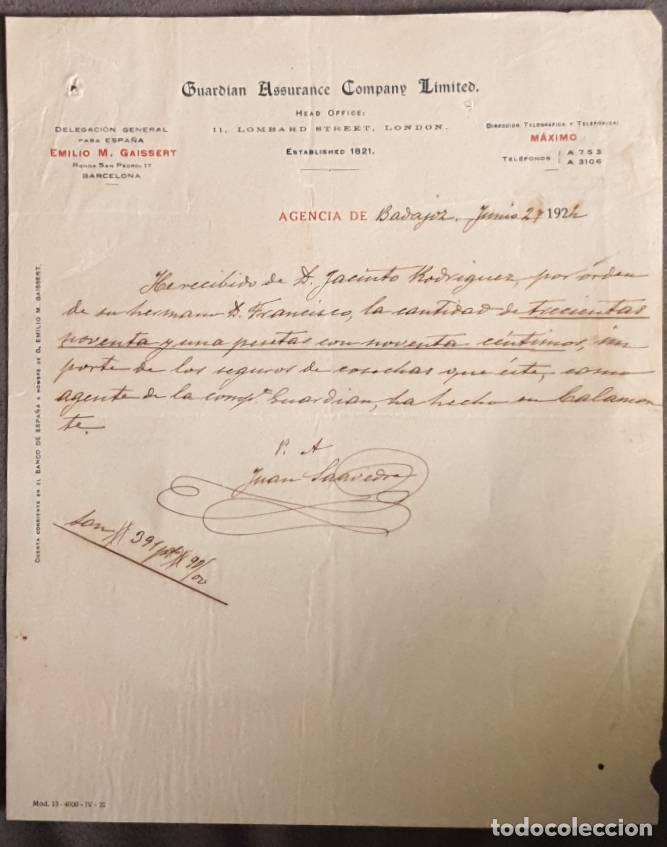 Guardian Assurance Company Limited.
HEAD OFFICE:
11, LOMBARD STREET, LONDON.
ESTABLISHED 1821.
DELEGACIÓN GENERAL
PARA ESPAÑA
EMILIO M. GAISSERT
RONDA SAN PEDRO, 17
BARCELONA
DIRECCIÓN TELEGRÁFICA Y TELEFÓNICA:
MÁXIMO
TELÉFONOS A 753
A 3106
AGENCIA DE Badajoz, Junio 27 1922
He recibido de D. Jacinto Rodriguez, por órden
de su hermano D. Francisco, la cantidad de trecientas
noventa y una pesetas con noventa céntimos, im
porte de los seguros de cosechas que éste, como
agente de la comp.ª Guardian, ha hecho en Calamon
te.
P. A
Juan Saavedra
Son # 391 pts # 90/00
CUENTA CORRIENTE EN EL BANCO DE ESPAÑA A NOMBRE DE D. EMILIO M. GAISSERT.
Mod. 13 - 4000 - IV - 22
todocoleccion